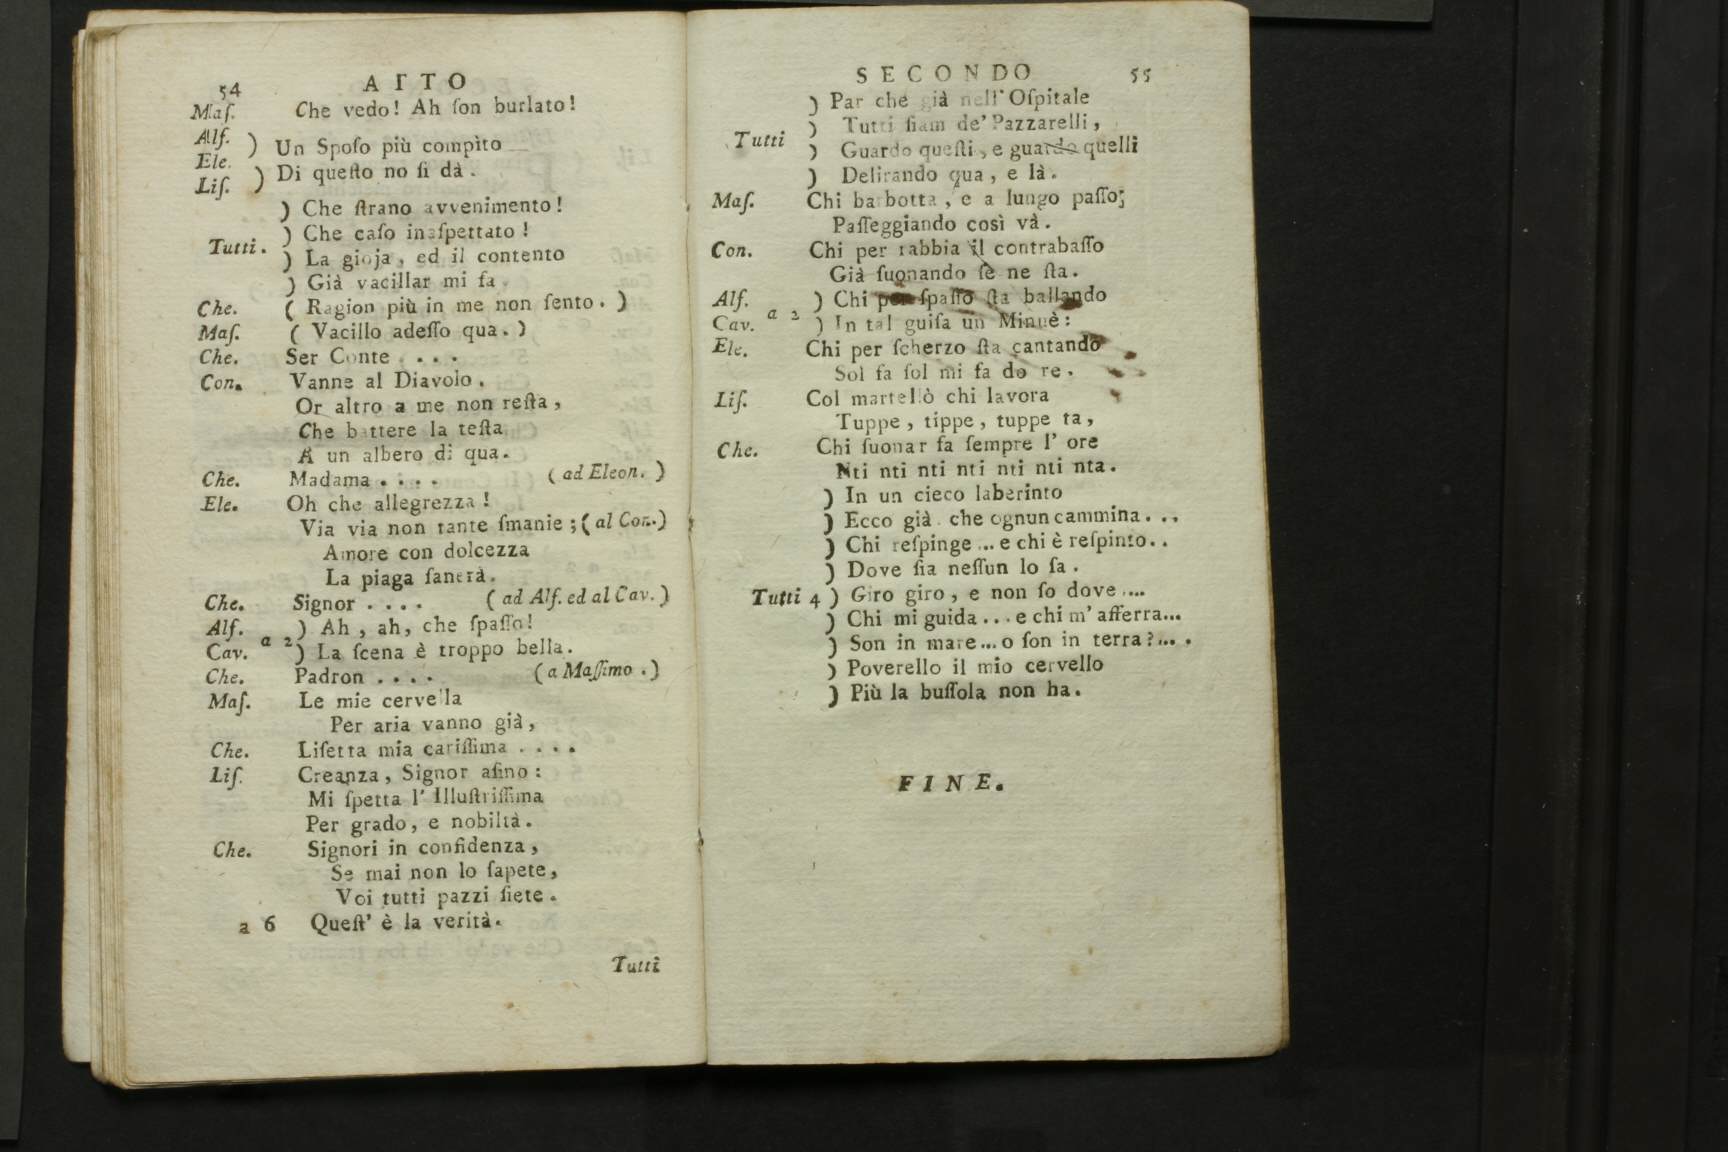 54 ATTO
Maſ. Che vedo! Ah ſon burlato!
Alſ. ) Un Spoſo più compìto
Ele.
Liſ. ) Di queſto no ſi dà.
) Che ſtrano avvenimento!
) Che caſo inaſpettato!
Tutti. ) La gioja, ed il contento
) Già vacillar mi fa.
Che. ( Ragion più in me non ſento. )
Maſ. ( Vacillo adeſſo qua. )
Che. Ser Conte . . . .
Con. Vanne al Diavolo.
Or altro a me non reſta,
Che battere la teſta
A un albero di qua.
Che. Madama . . . . ( ad Eleon. )
Ele. Oh che allegrezza!
Via via non tante ſmanie; ( al Con. )
Amore con dolcezza
La piaga ſanerà.
Che. Signor . . . . ( ad Alf. ed al Cav. )
Alf. ) Ah, ah, che ſpaſſo!
a 2
Cav. ) La ſcena è troppo bella.
Che. Padron . . . . ( a Maſſimo. )
Maſ. Le mie cervella
Per aria vanno già,
Che. Liſetta mia cariſſima . . . .
Liſ. Creanza, Signor aſino:
Mi ſpetta l' Illuſtriſſima
Per grado, e nobiltà.
Che. Signori in confidenza,
Se mai non lo ſapete,
Voi tutti pazzi ſiete.
a 6 Queſt' è la verità.
Tutti
SECONDO 55
) Par che già nell' Oſpitale
) Tutti ſiam de' Pazzarelli,
Tutti
) Guardo queſti, e guardo quelli
) Delirando qua, e là.
Maſ. Chi barbotta, e a lungo paſſo;
Paſſeggiando così và.
Con. Chi per rabbia il contrabaſſo
Già ſuonando ſe ne ſta.
Alf. ) Chi per ſpaſſo ſta ballando
a 2
Cav. ) In tal guiſa un Minuè:
Ele. Chi per ſcherzo ſta cantando
Sol fa ſol mi fa do re.
Liſ. Col martellò chi lavora
Tuppe, tippe, tuppe ta,
Che. Chi ſuonar fa ſempre l' ore
Nti nti nti nti nti nti nta.
) In un cieco laberinto
) Ecco già che ognun cammina. . .
) Chi reſpinge ... e chi è reſpinto. .
) Dove ſia neſſun lo ſa.
Tutti 4 ) Giro giro, e non ſo dove ....
) Chi mi guida . . . e chi m' afferra...
) Son in mare ... o ſon in terra?... .
) Poverello il mio cervello
) Più la buſſola non ha.
FINE.